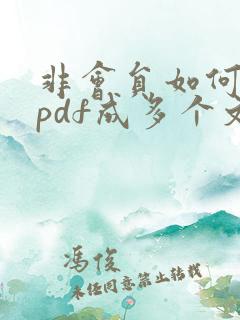 非會員如何
pdf成多个文
馮俊
未经同意禁止转载